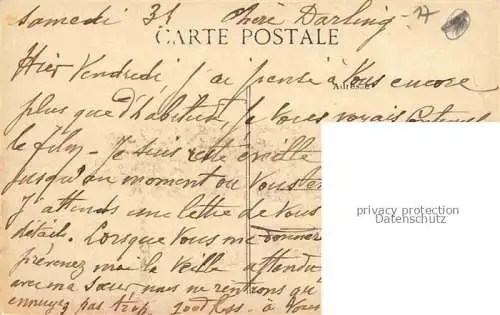 Samedi 31 Chère Darling - 17
CARTE POSTALE
Hier Vendredi j'ai pensé à Vous encore
Adresse
plus que d'habitude, je Vous voyais
le film - Je suis resté éveillé
jusqu'au moment où Vous
J'attends une lettre de Vous
détail. Lorsque Vous me
prévenez moi la veille attendu
avec ma sœur, nous ne rentrions qu'
ennuyez pas trop. good kiss - à Vous
privacy protection
Datenschutz